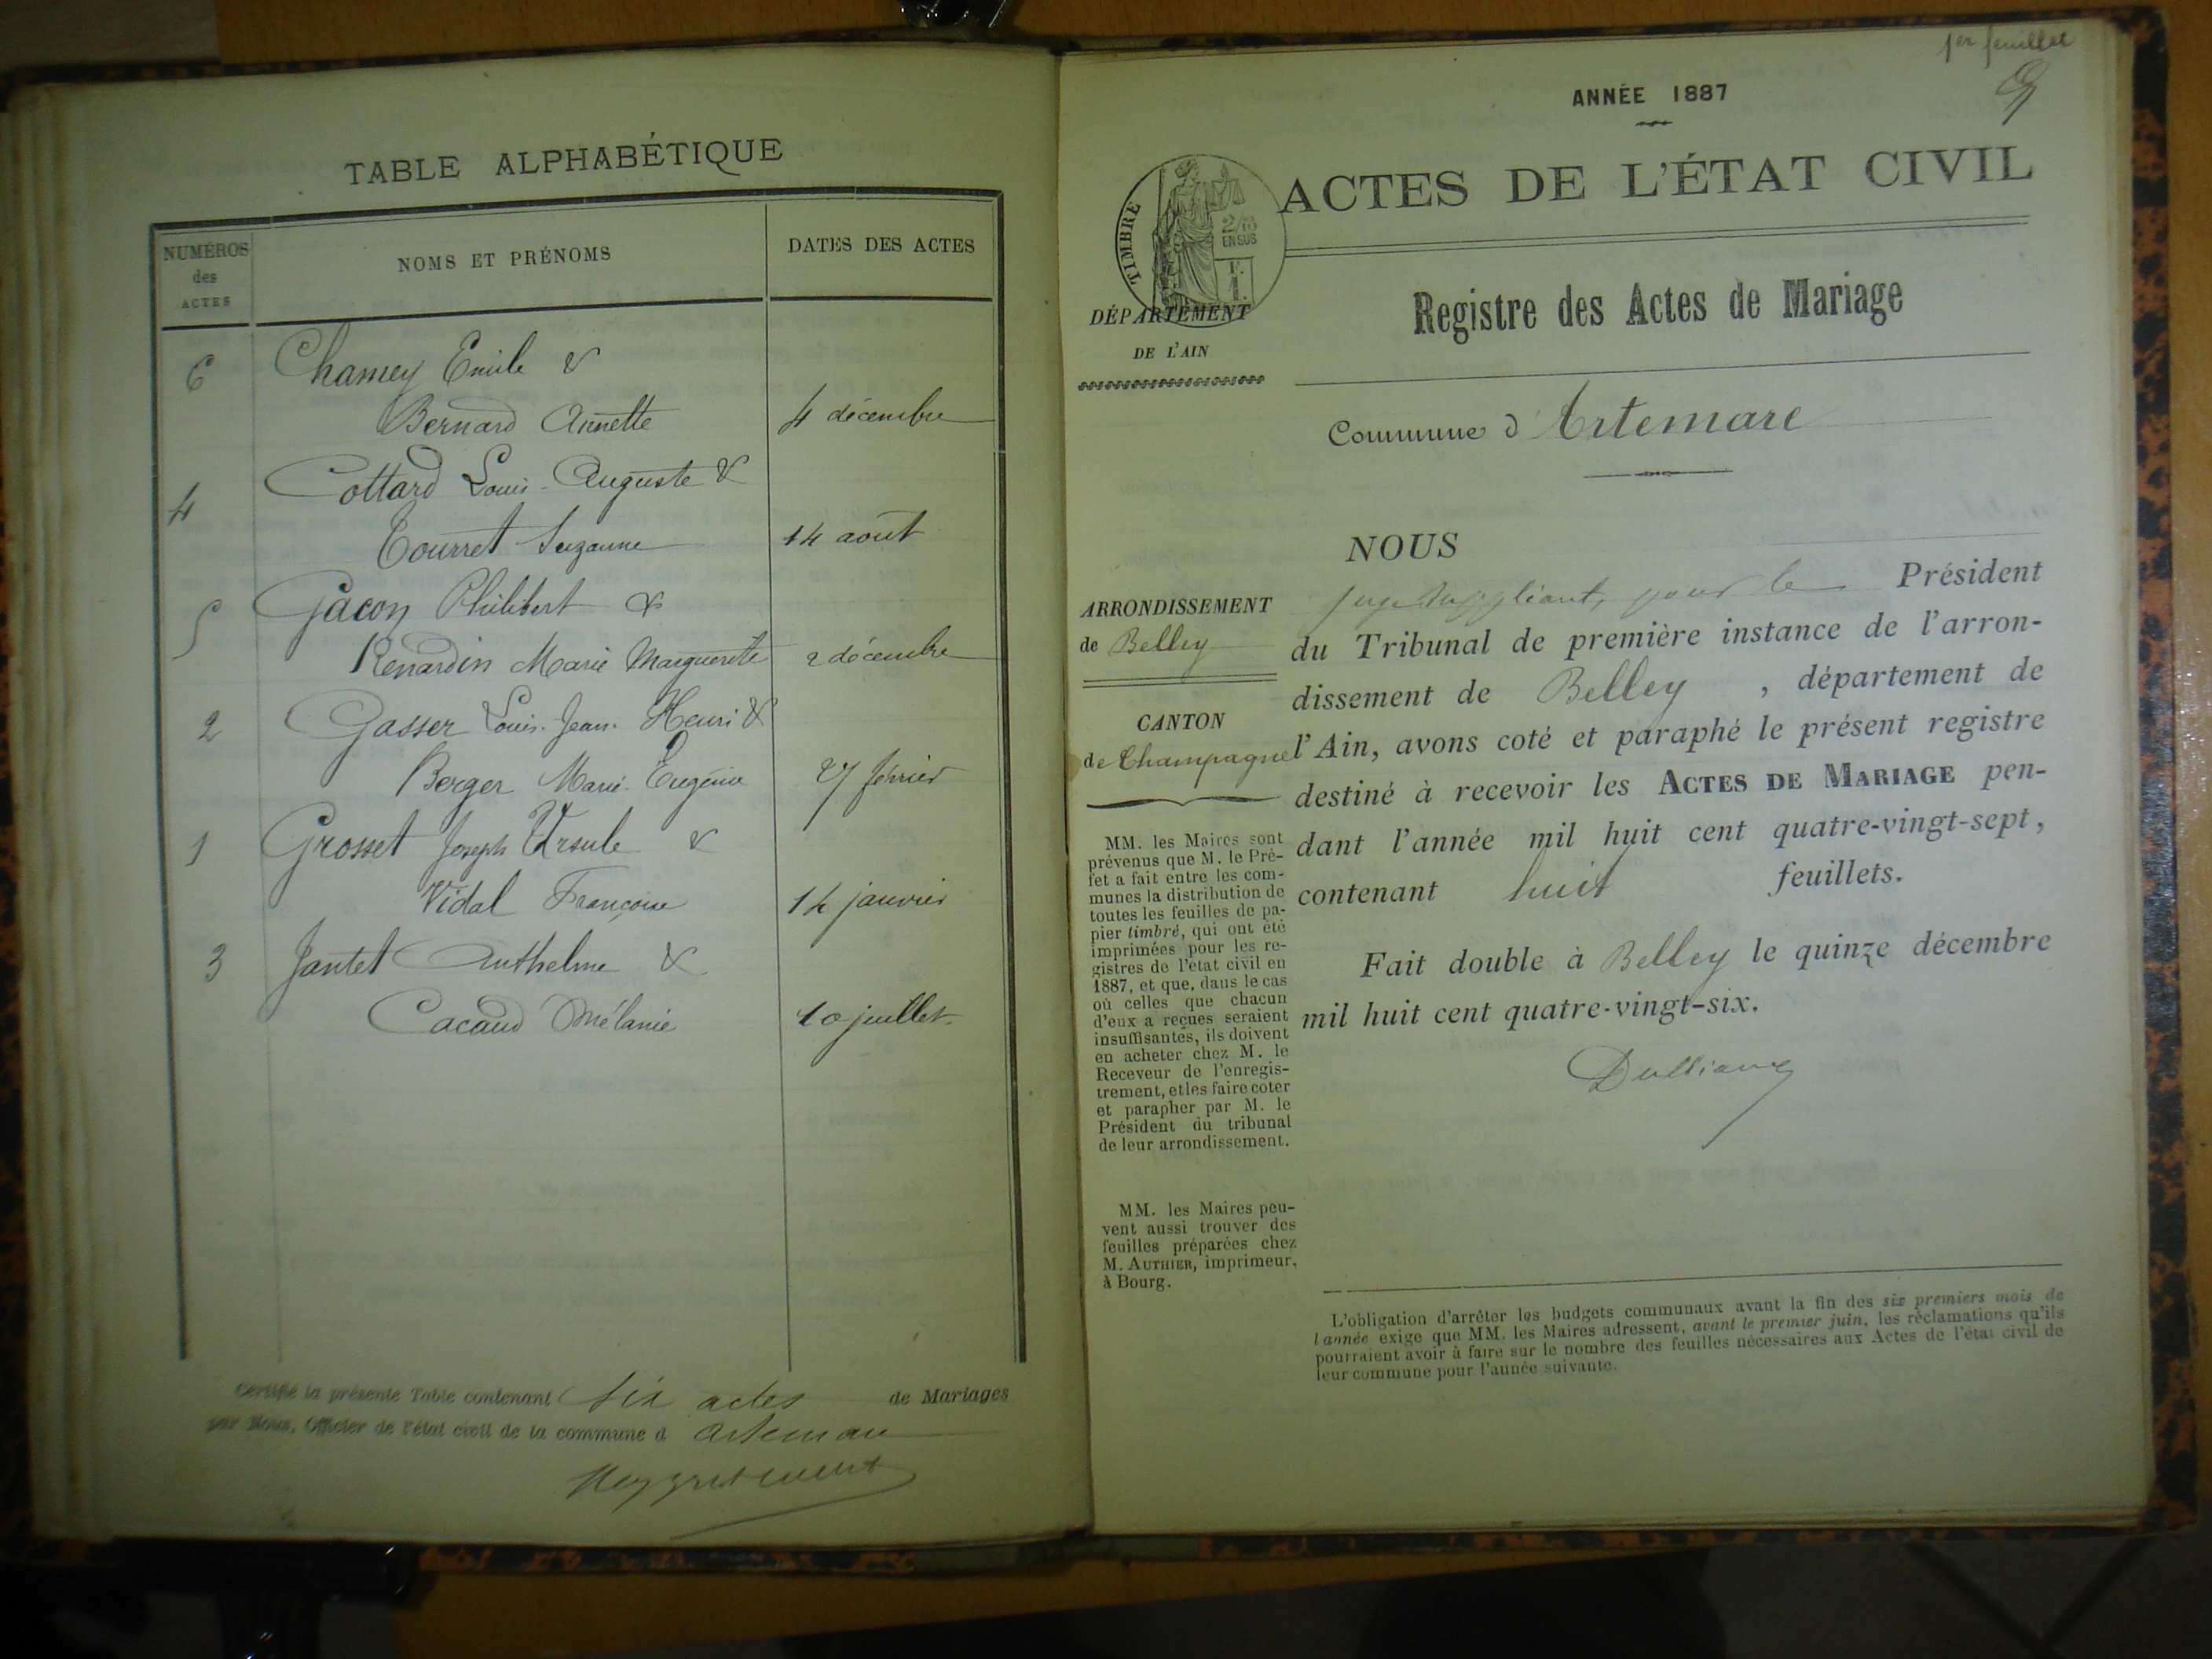 TABLE ALPHABÉTIQUE
NUMÉROS des ACTES
NOMS ET PRÉNOMS
DATES DES ACTES
6 Chamey Emile &
Bernard Annette 4 décembre
4 Cottard Louis-Auguste &
Tourret Suzanne 14 août
5 Gacon Philibert &
Renardin Marie Marguerite 2 décembre
2 Gasser Louis-Jean-Henri &
Berger Marie-Eugénie 27 février
1 Grosset Joseph Ursule &
Vidal Françoise 14 janvier
3 Jantet Anthelme &
Cacaud Mélanie 10 juillet
Certifié la présente Table contenant six actes de Mariages
par Nous, Officier de l'état civil de la commune d Artemare
1er feuillet
ANNÉE 1887
ACTES DE L'ÉTAT CIVIL
TIMBRE
2/10
EN SUS
DÉPARTEMENT
DE L'AIN
Registre des Actes de Mariage
Commune d'Artemare
ARRONDISSEMENT
de Belley
CANTON
de Champagne
MM. les Maires sont
prévenus que M. le Pré-
fet a fait entre les com-
munes la distribution de
toutes les feuilles de pa-
pier timbré, qui ont été
imprimées pour les re-
gistres de l'état civil en
1887, et que, dans le cas
où celles que chacun
d'eux a reçues seraient
insuffisantes, ils doivent
en acheter chez M. le
Receveur de l'enregis-
trement, et les faire coter
et parapher par M. le
Président du tribunal
de leur arrondissement.
MM. les Maires peu-
vent aussi trouver des
feuilles préparées chez
M. AUTHIER, imprimeur,
à Bourg.
NOUS
juge suppléant, pour le Président
du Tribunal de première instance de l'arron-
dissement de Belley, département de
l'Ain, avons coté et paraphé le présent registre
destiné à recevoir les ACTES DE MARIAGE pen-
dant l'année mil huit cent quatre-vingt-sept,
contenant huit feuillets.
Fait double à Belley le quinze décembre
mil huit cent quatre-vingt-six.
L'obligation d'arrêter les budgets communaux avant la fin des six premiers mois de
l'année exige que MM. les Maires adressent, avant le premier juin, les réclamations qu'ils
pourraient avoir à faire sur le nombre des feuilles nécessaires aux Actes de l'état civil de
leur commune pour l'année suivante.